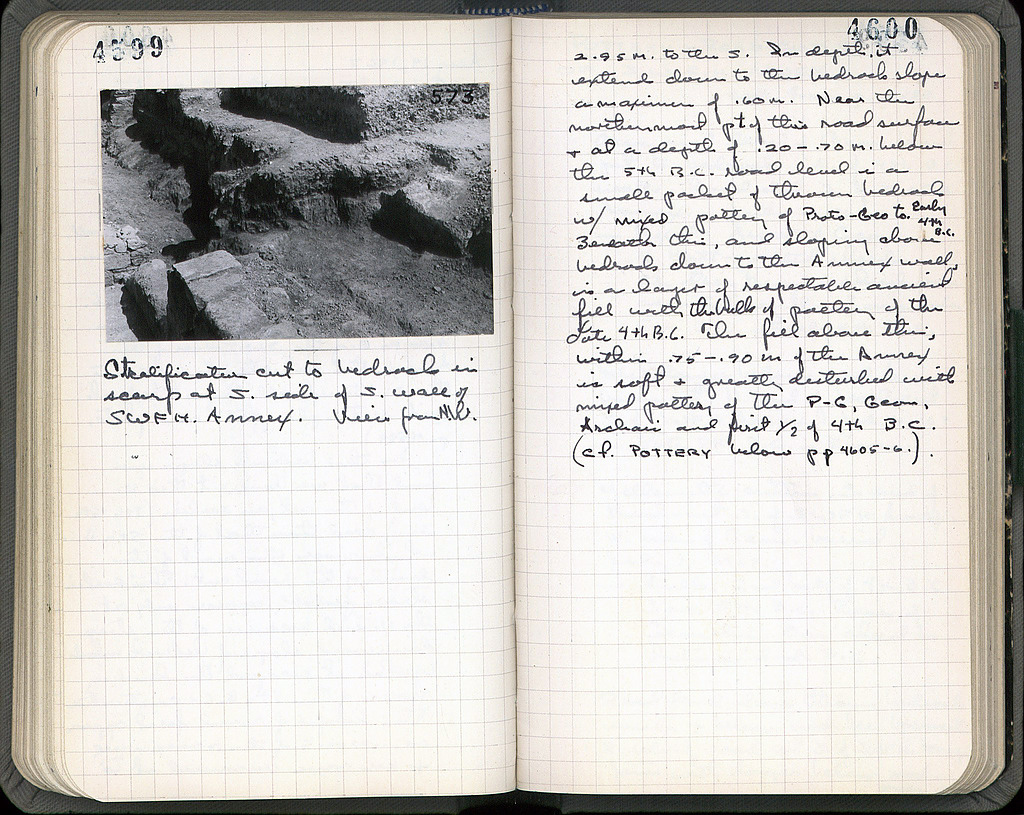 4599
573
Stratification cut to bedrock in
scarp at S. side of S. wall of
SWFH. Annex. View from NW.
4600
2.95 M. to the S. In depth it
extend down to the bedrock slope
a maximum of .60 m. Near the
northernmost pt of this road surface
+ at a depth of .20 – .70 M. below
the 5th B.C. road level is a
small pocket of thrown bedrock
w/ mixed pottery of Proto-Geo to Early 4th B.C.
Beneath this, and sloping above
bedrock down to the Annex wall,
is a layer of respectable ancient
fill with the bulk of pottery of the
late 4th B.C. The fill above this,
within .75 – .90 m of the Annex
is soft + greatly disturbed with
mixed pottery of the P-G, Geom,
Archaic and first 1/2 of 4th B.C.
(cf. POTTERY below pp 4605-6.).